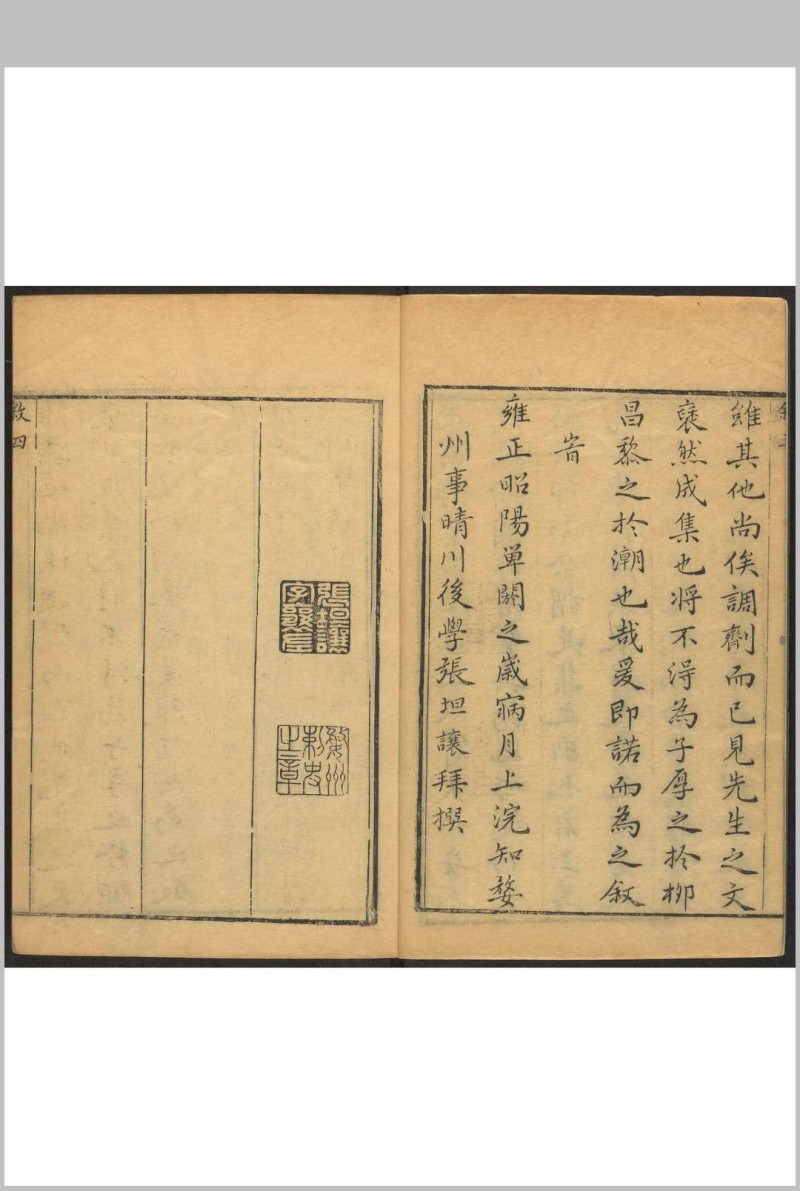 雖其他尚俟調劑而已見先生之文
裒然成集也將不得為子厚之於柳
昌黎之於潮也哉爰即諾而為之敘
旹
雍正昭陽單閼之歲寎月上浣知婺
州事晴川後學張坦讓拜撰
張坦讓
婺州
刺史
之章
敘四